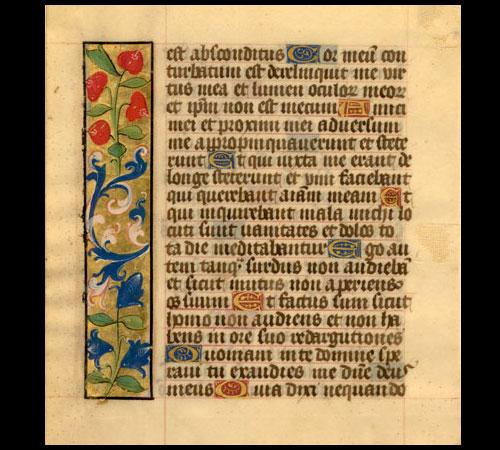 est absconditus Cor meū con
turbatum est dereliquit me vir
tus mea et lumen oculor meor
et ipm̄ non est mecum Amici
mei et proximi mei adversum
me appropinquaverunt et stete
runt Et qui iuxta me erant de
longe steterunt et vim faciebant
qui querebant aiam meam Et
qui inquirebant mala michi lo
cuti sunt vanitates et dolos to
ta die meditabantur Ego au
tem tanq̄ surdus non audiebā
et sicut mutus non aperiens
os suum Et factus sum sicut
homo non audiens et non ha
bens in ore suo redargutiones
Quoniam in te domine spe
ravi tu exaudies me dn̄e deus
meus Quia dixi nequando